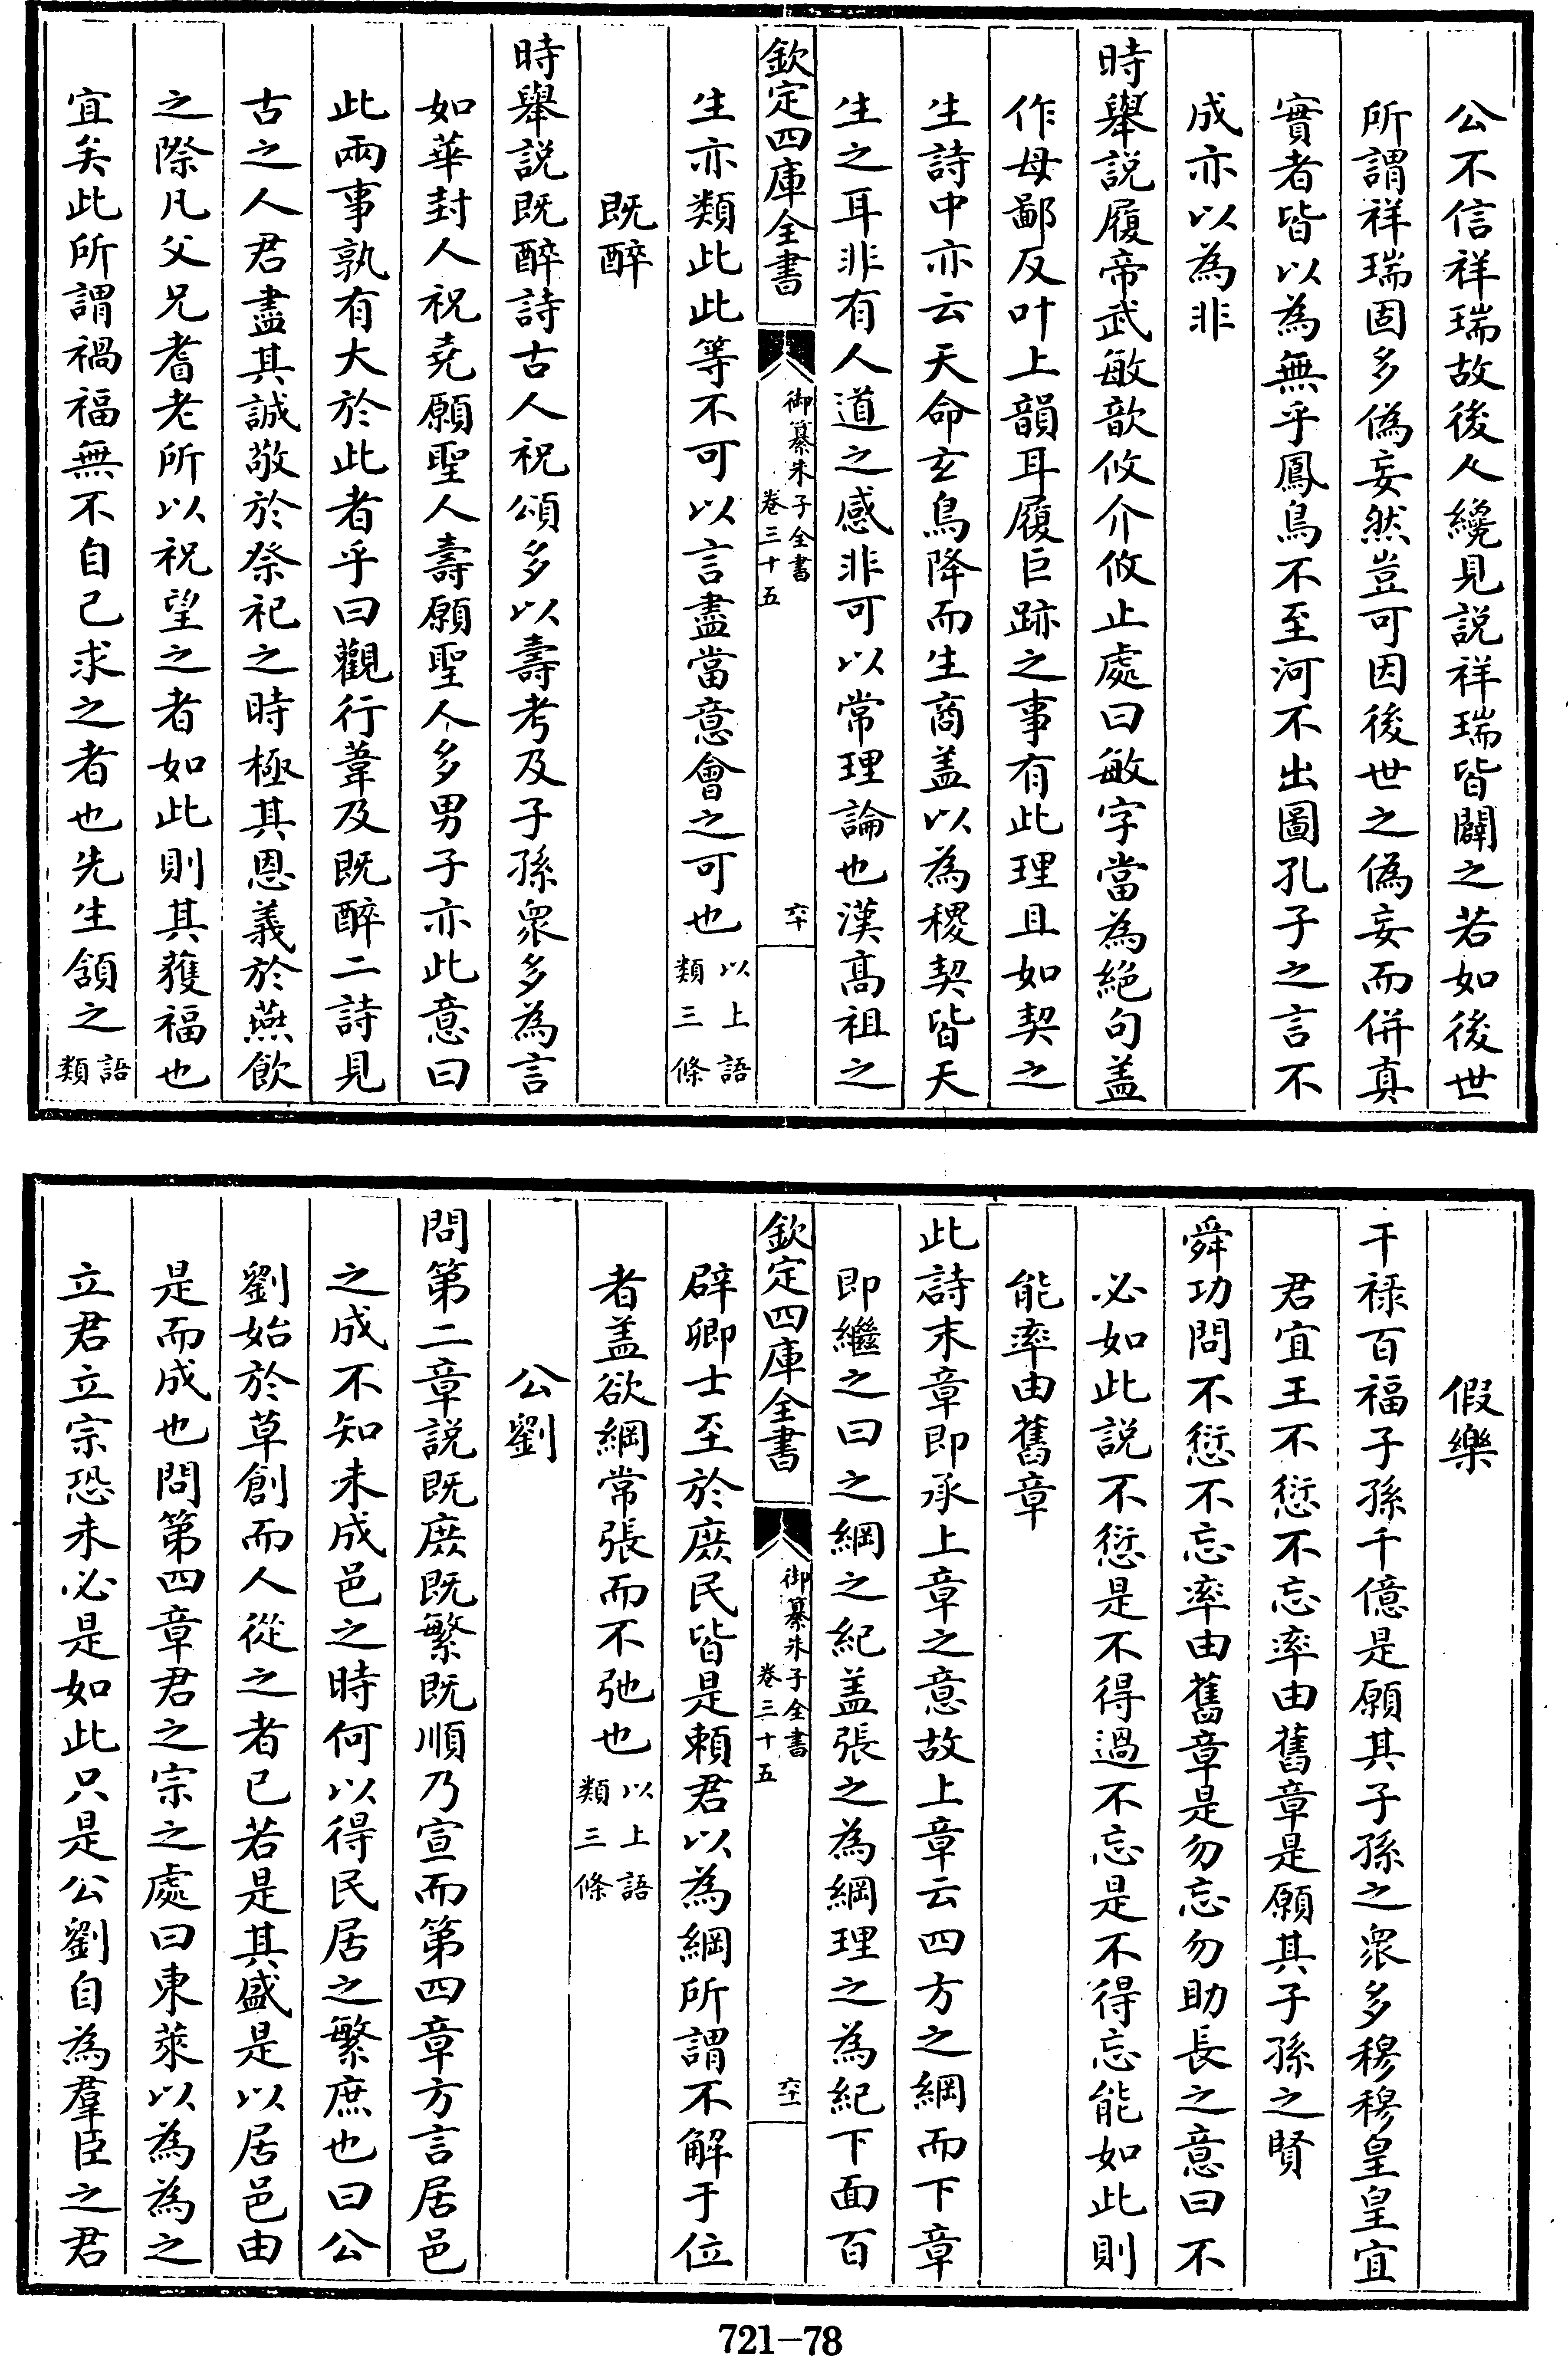 公不信祥瑞故後人纔見説祥瑞皆闢之若如後世
所謂祥瑞固多偽妄然豈可因後世之偽妄而併真
實者皆以為無乎鳳鳥不至河不出圖孔子之言不
成亦以為非
時舉説履帝武敏歆攸介攸止處曰敏字當為絕句盖
作母鄙反叶上韻耳履巨跡之事有此理且如契之
生詩中亦云天命玄鳥降而生商盖以為稷契皆天
生之耳非有人道之感非可以常理論也漢髙祖之
欽定四庫全書
御纂朱子全書
卷三十五
六十
生亦類此此等不可以言盡當意會之可也以上語類三條
既醉
時舉説既醉詩古人祝頌多以壽考及子孫衆多為言
如華封人祝堯願聖人壽願聖人多男子亦此意曰
此兩事孰有大於此者乎曰觀行葦及既醉二詩見
古之人君盡其誠敬於祭祀之時極其恩義於燕飲
之際凡父兄耆老所以祝望之者如此則其獲福也
宜矣此所謂禍福無不自己求之者也先生頷之語類
假樂
干祿百福子孫千億是願其子孫之衆多穆穆皇皇宜
君宜王不愆不忘率由舊章是願其子孫之賢
舜功問不愆不忘率由舊章是勿忘勿助長之意曰不
必如此説不愆是不得過不忘是不得忘能如此則
能率由舊章
此詩末章即承上章之意故上章云四方之綱而下章
即繼之曰之綱之紀盖張之為綱理之為紀下面百
欽定四庫全書
御纂朱子全書
卷三十五
六十一
辟卿士至於庶民皆是賴君以為綱所謂不解于位
者盖欲綱常張而不弛也以上語類三條
公劉
問第二章説既庶既繁既順乃宣而第四章方言居邑
之成不知未成邑之時何以得民居之繁庶也曰公
劉始於草創而人從之者已若是其盛是以居邑由
是而成也問第四章君之宗之處曰東萊以為為之
立君立宗恐未必是如此只是公劉自為羣臣之君
721-78